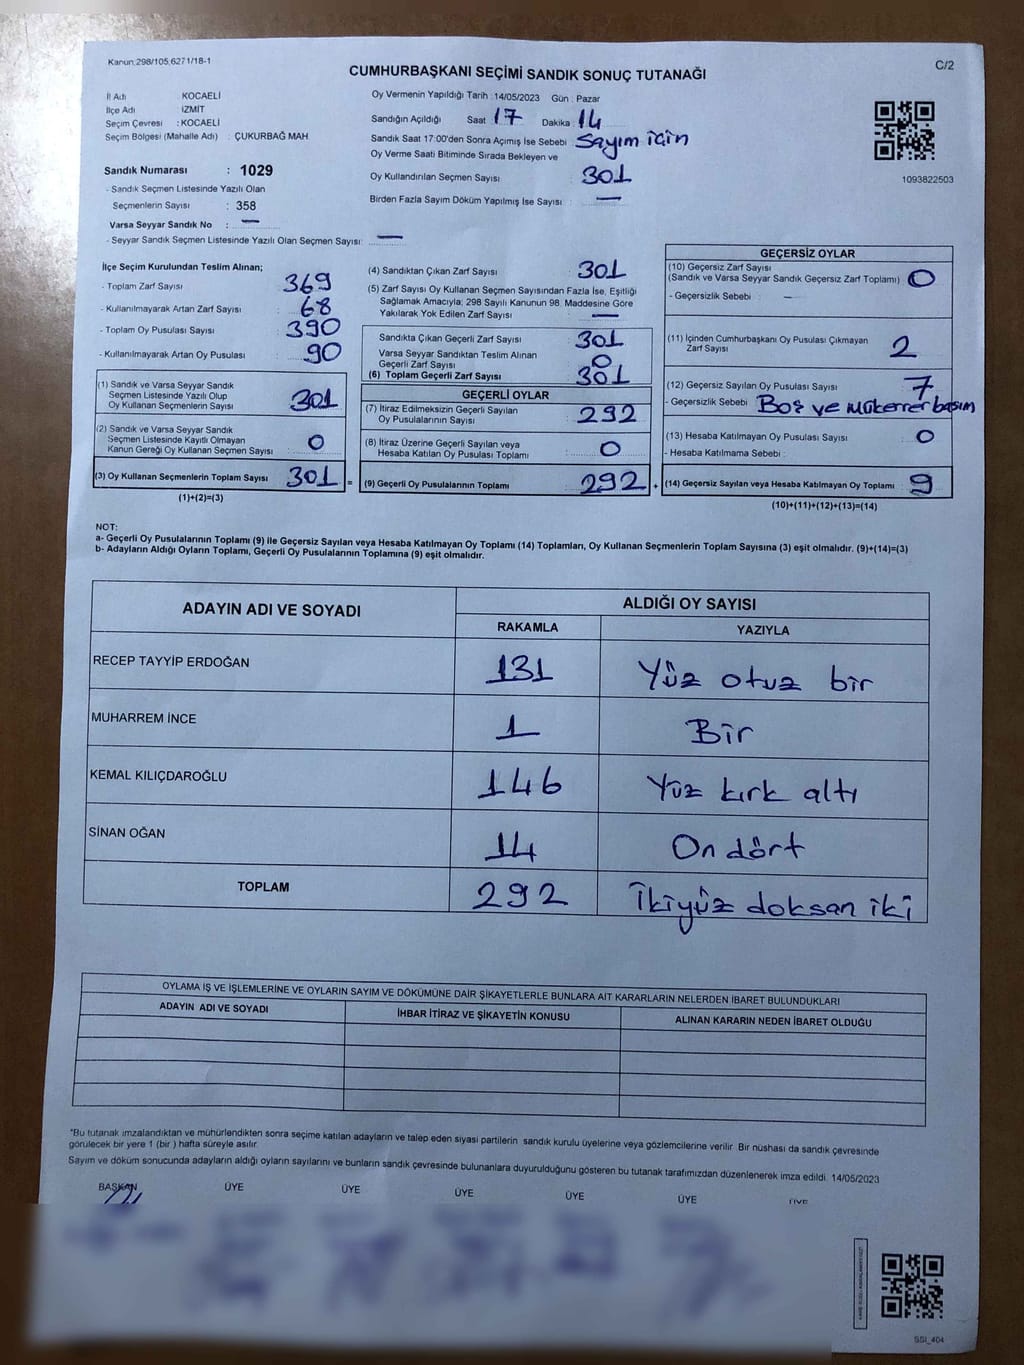 Kanun:298/105,6271/18-1
C/2
CUMHURBAŞKANI SEÇİMİ SANDIK SONUÇ TUTANAĞI
İl Adı : KOCAELİ
İlçe Adı : İZMİT
Seçim Çevresi : KOCAELİ
Seçim Bölgesi (Mahalle Adı) : ÇUKURBAĞ MAH
Sandık Numarası : 1029
- Sandık Seçmen Listesinde Yazılı Olan
Seçmenlerin Sayısı : 358
Varsa Seyyar Sandık No : —
- Seyyar Sandık Seçmen Listesinde Yazılı Olan Seçmen Sayısı: —
Oy Vermenin Yapıldığı Tarih : 14/05/2023 Gün : Pazar
Sandığın Açıldığı Saat 17 Dakika : 14
Sandık Saat 17:00'den Sonra Açımış İse Sebebi : Sayım için
Oy Verme Saati Bitiminde Sırada Bekleyen ve
Oy Kullandırılan Seçmen Sayısı : 301
Birden Fazla Sayım Döküm Yapılmış İse Sayısı : —
1093822503
İlçe Seçim Kurulundan Teslim Alınan;
- Toplam Zarf Sayısı : 369
- Kullanılmayarak Artan Zarf Sayısı : 68
- Toplam Oy Pusulası Sayısı : 390
- Kullanılmayarak Artan Oy Pusulası : 90
(1) Sandık ve Varsa Seyyar Sandık
Seçmen Listesinde Yazılı Olup
Oy Kullanan Seçmenlerin Sayısı : 301
(2) Sandık ve Varsa Seyyar Sandık
Seçmen Listesinde Kayıtlı Olmayan
Kanun Gereği Oy Kullanan Seçmen Sayısı : 0
(3) Oy Kullanan Seçmenlerin Toplam Sayısı 301 =
(1)+(2)=(3)
(4) Sandıktan Çıkan Zarf Sayısı : 301
(5) Zarf Sayısı Oy Kullanan Seçmen Sayısından Fazla İse, Eşitliği
Sağlamak Amacıyla; 298 Sayılı Kanunun 98. Maddesine Göre
Yakılarak Yok Edilen Zarf Sayısı : —
Sandıkta Çıkan Geçerli Zarf Sayısı : 301
Varsa Seyyar Sandıktan Teslim Alınan
Geçerli Zarf Sayısı : 0
(6) Toplam Geçerli Zarf Sayısı : 301
GEÇERLİ OYLAR
(7) İtiraz Edilmeksizin Geçerli Sayılan
Oy Pusulalarının Sayısı : 292
(8) İtiraz Üzerine Geçerli Sayılan veya
Hesaba Katılan Oy Pusulası Toplamı : 0
(9) Geçerli Oy Pusulalarının Toplamı : 292 +
GEÇERSİZ OYLAR
(10) Geçersiz Zarf Sayısı
(Sandık ve Varsa Seyyar Sandık Geçersiz Zarf Toplamı) : 0
- Geçersizlik Sebebi : —
(11) İçinden Cumhurbaşkanı Oy Pusulası Çıkmayan
Zarf Sayısı : 2
(12) Geçersiz Sayılan Oy Pusulası Sayısı : 7
- Geçersizlik Sebebi : Boş ve mükerrer basım
(13) Hesaba Katılmayan Oy Pusulası Sayısı : 0
- Hesaba Katılmama Sebebi :
(14) Geçersiz Sayılan veya Hesaba Katılmayan Oy Toplamı : 9
(10)+(11)+(12)+(13)=(14)
NOT:
a- Geçerli Oy Pusulalarının Toplamı (9) ile Geçersiz Sayılan ve Hesaba Katılmayan Oy Toplamı (14) Toplamları, Oy Kullanan Seçmenlerin Toplam Sayısına (3) eşit olmalıdır. (9)+(14)=(3)
b- Adayların Aldığı Oyların Toplamı, Geçerli Oy Pusulalarının Toplamına (9) eşit olmalıdır.
ADAYIN ADI VE SOYADI
ALDIĞI OY SAYISI
RAKAMLA YAZIYLA
RECEP TAYYİP ERDOĞAN 131 Yüz otuz bir
MUHARREM İNCE 1 Bir
KEMAL KILIÇDAROĞLU 146 Yüz kırk altı
SİNAN OĞAN 14 On dört
TOPLAM 292 İkiyüz doksan iki
OYLAMA İŞ VE İŞLEMLERİNE VE OYLARIN SAYIM VE DÖKÜMÜNE DAİR ŞİKAYETLERLE BUNLARA AİT KARARLARIN NELERDEN İBARET BULUNDUKLARI
ADAYIN ADI VE SOYADI İHBAR İTİRAZ VE ŞİKAYETİN KONUSU ALINAN KARARIN NEDEN İBARET OLDUĞU
*Bu tutanak imzalandıktan ve mühürlendikten sonra seçime katılan adayların ve talep eden siyasi partilerin sandık kurulu üyelerine veya gözlemcilerine verilir. Bir nüshası da sandık çevresinde
görülecek bir yere 1 (bir ) hafta süreyle asılır.
Sayım ve döküm sonucunda adayların aldığı oyların sayılarını ve bunların sandık çevresinde bulunanlara duyurulduğunu gösteren bu tutanak tarafımızdan düzenlenerek imza edildi. 14/05/2023
BAŞKAN ÜYE ÜYE ÜYE ÜYE ÜYE ÜYE
SSİ_404